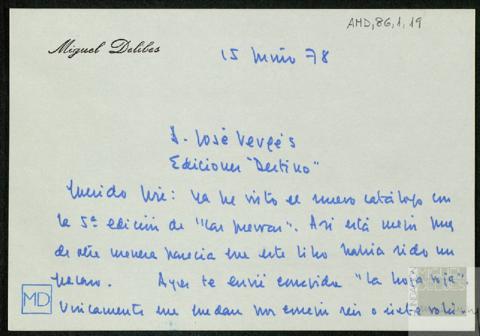 AMD,86,1,19
Miguel Delibes
15 Junio 78
D. José Vergés
Ediciones "Destino"
Querido José: Ya he visto el nuevo catálogo con
la 5ª edición de "Las guerras". Así está mejor pues
de otra manera parecía que este libro había sido un
fracaso. Ayer te envié corregida "La hoja roja".
Unicamente me quedan por corregir seis o siete
MD